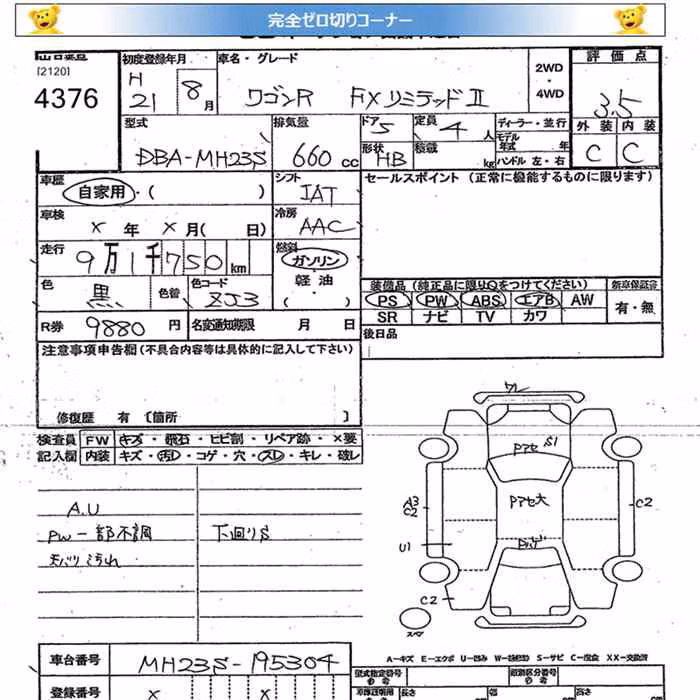 完全ゼロ切りコーナー
[2120]
4376
初度登録年月 車名・グレード 評価点
H 21 8月 ワゴンR FXリミテッドⅡ
2WD
・
4WD
3.5
型式 排気量 ドア 定員 ディーラー・並行 外装 内装
DBA-MH23S 660 cc 5 4人 モデル年式 年 C C
形状 HB 積載 kg ハンドル 左・右
車歴 シフト セールスポイント (正常に機能するものに限ります)
自家用・( ) IAT
車検 冷房
× 年 × 月( 日) AAC
走行 燃料
9万1千750km ガソリン
軽油
・( )
色 黒 色替 色コード ZJ3
装備品(純正品に限り○をつけてください) 新車保証書
PS PW ABS エアB AW 有・無
SR ナビ TV カワ
R券 9880 円 名変通知期限 月 日 後日品
注意事項申告欄(不具合内容等は具体的に記入して下さい)
修復歴 有 〔箇所 〕
検査員 FW キズ・飛石・ヒビ割・リペア跡・×要
記入欄 内装 キズ・汚れ・コゲ・穴・スレ・キレ・破レ
A.U
PW一部不調 下回りS
天バリよごれ
ワレ
Pアセ S1
A3
C2
Pアセ大
C2
U1
C2
スペア
A-キズ E-エクボ U-凹み S-サビ C-腐食 XX-交換済
車台番号 MH23S-195304
型式指定番号 類別区分番号
登録番号 × × 長さ 幅 高さ